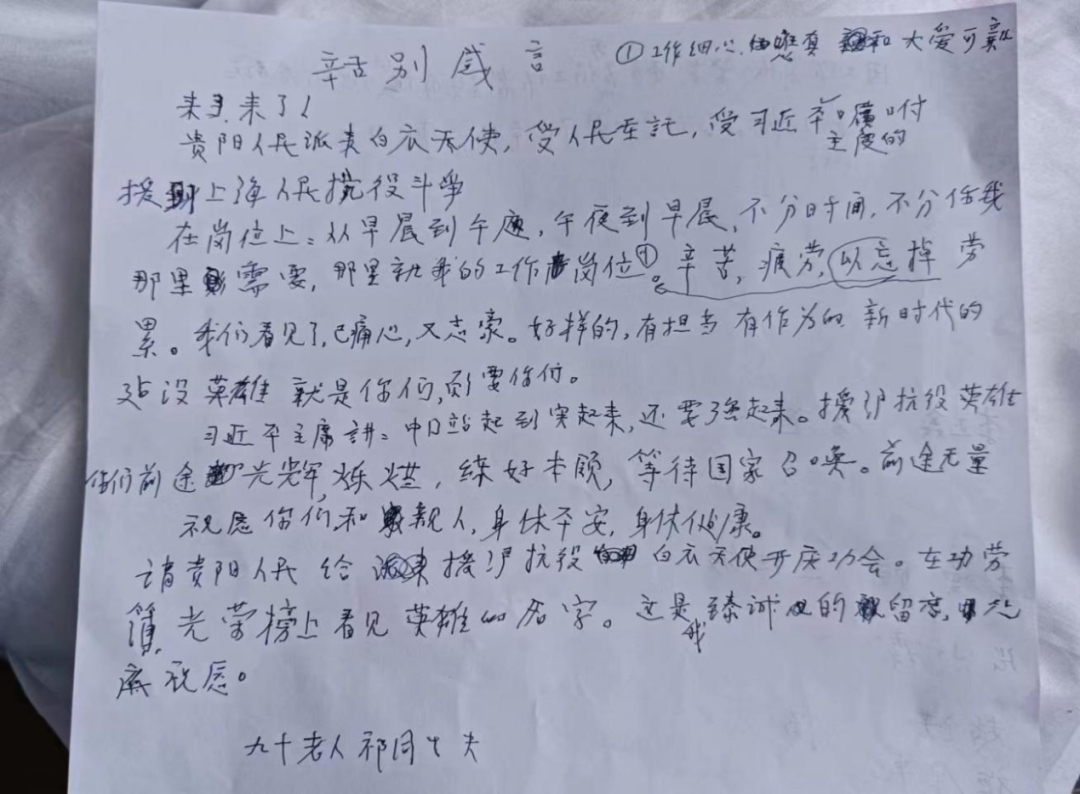 辞别感言
①工作细心, 认真 和 大爱可亲
来了,来了!
贵阳人民派来白衣天使,受人民重託,受习近平
主席的
嘱咐
援 上海人民抗役斗争
在岗位上:从早晨到午夜,午夜到早晨,不分时间,不分你我
那里 需要,那里就我的工作 岗位①。辛苦,疲劳,以忘掉 劳
累。我们看见了,已痛心,又志豪。好样的,有担当 有作为的 新时代的
建设英雄 就是你们, 要你们。
习近平主席讲:中国站起到突起来,还要强起来。援沪抗役英雄
你们前途 光辉烁烂,练好本领,等待国家召唤。前途无量
祝愿你们和 亲人,身体平安,身体健康。
请贵阳人民 给 援沪抗役 白衣天使开庆功会。在功劳
簿,光荣榜上看见英雄的名字。这是
我
臻诚 的 留言,
底祝愿。
九十老人祁同